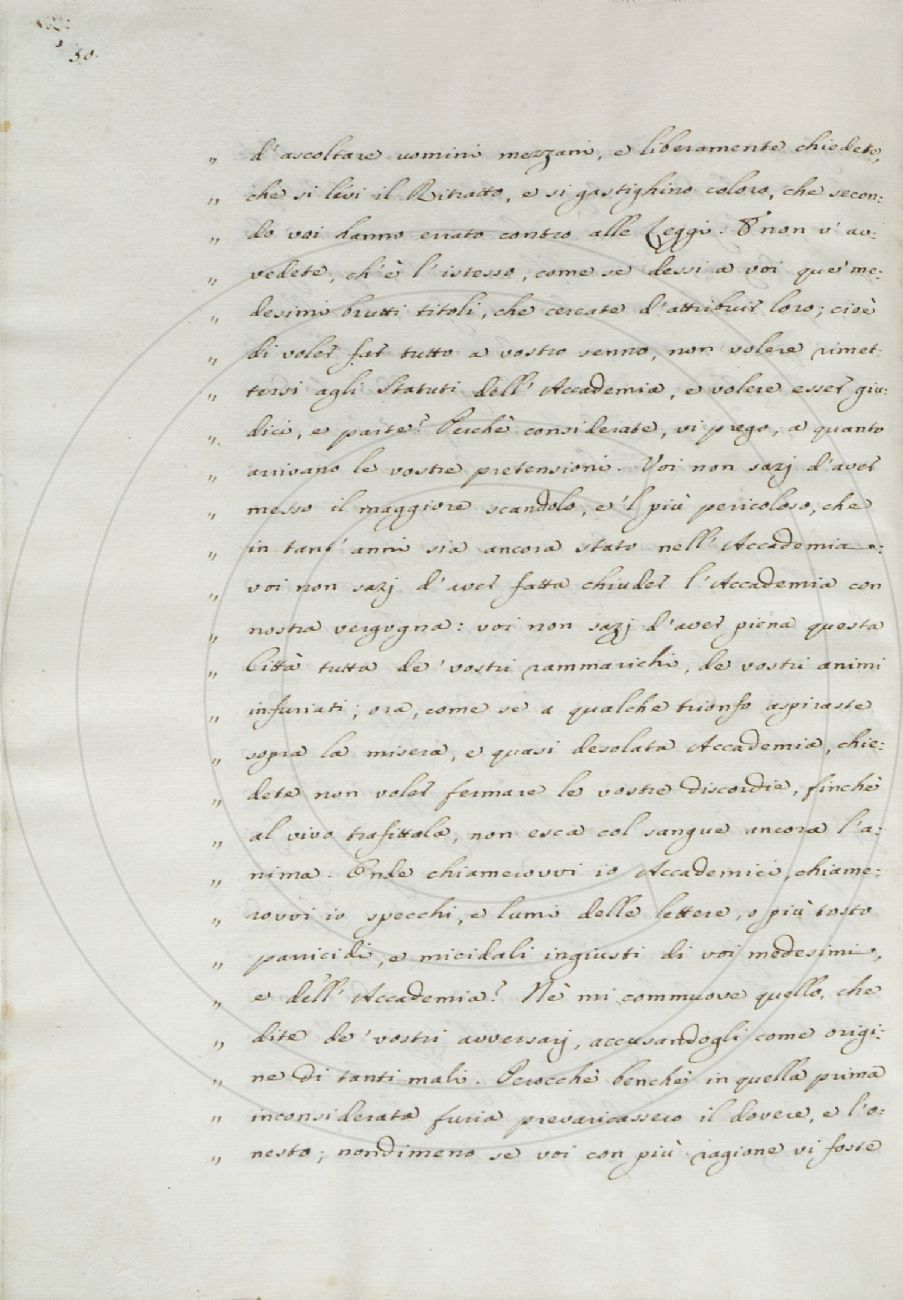 50.
„ d'ascoltare uomini mezzani, e liberamente chiedete,
„ che si lievi il Ritratto, e si gastighino coloro, che secon:
„ do voi hanno errato contro alle Leggi. E non v'av:
„ vedete, ch'è l'istesso, come se dessi a voi quei me:
„ desimi brutti titoli, che cercate d'attribuir loro; cioè
„ di voler far tutto a vostro senno, non volere rimet:
„ tersi agli Statuti dell'Accademia, e volere esser giu:
„ dici, e parte? Perchè considerate, vi prego, a quanto
„ arrivano le vostre pretensioni. Voi non sazj d'aver
„ messo il maggiore scandolo, e'l più pericoloso, che
„ in tant'anni sia ancora stato nell'Accademia:
„ voi non sazj d'aver fatta chiuder l'Accademia con
„ nostra vergogna: voi non sazj d'aver piena questa
„ Città tutta de' vostri rammarichi, de vostri animi
„ infuriati; ora, come se a qualche trionfo aspiraste
„ sopra la misera, e quasi desolata Accademia, chie:
„ dete non voler fermare le vostre discordie, finchè
„ al vivo trafittola, non esca col sangue ancora l'a:
„ nima. Onde chiamerovvi io Accademici, chiame:
„ rovvi io specchi, e lumi delle lettere, o più tosto
„ parricidi, e micidali ingiusti di voi medesimi,
„ e dell'Accademia? Nè mi commuove quello, che
„ dite de' vostri avversarj, accusandogli come origi:
„ ne di tanti mali. Perocchè benchè in quella prima
„ inconsiderata furia prevaricassero il dovere, e l'o:
„ nesto; nondimeno se voi con più ragione vi foste